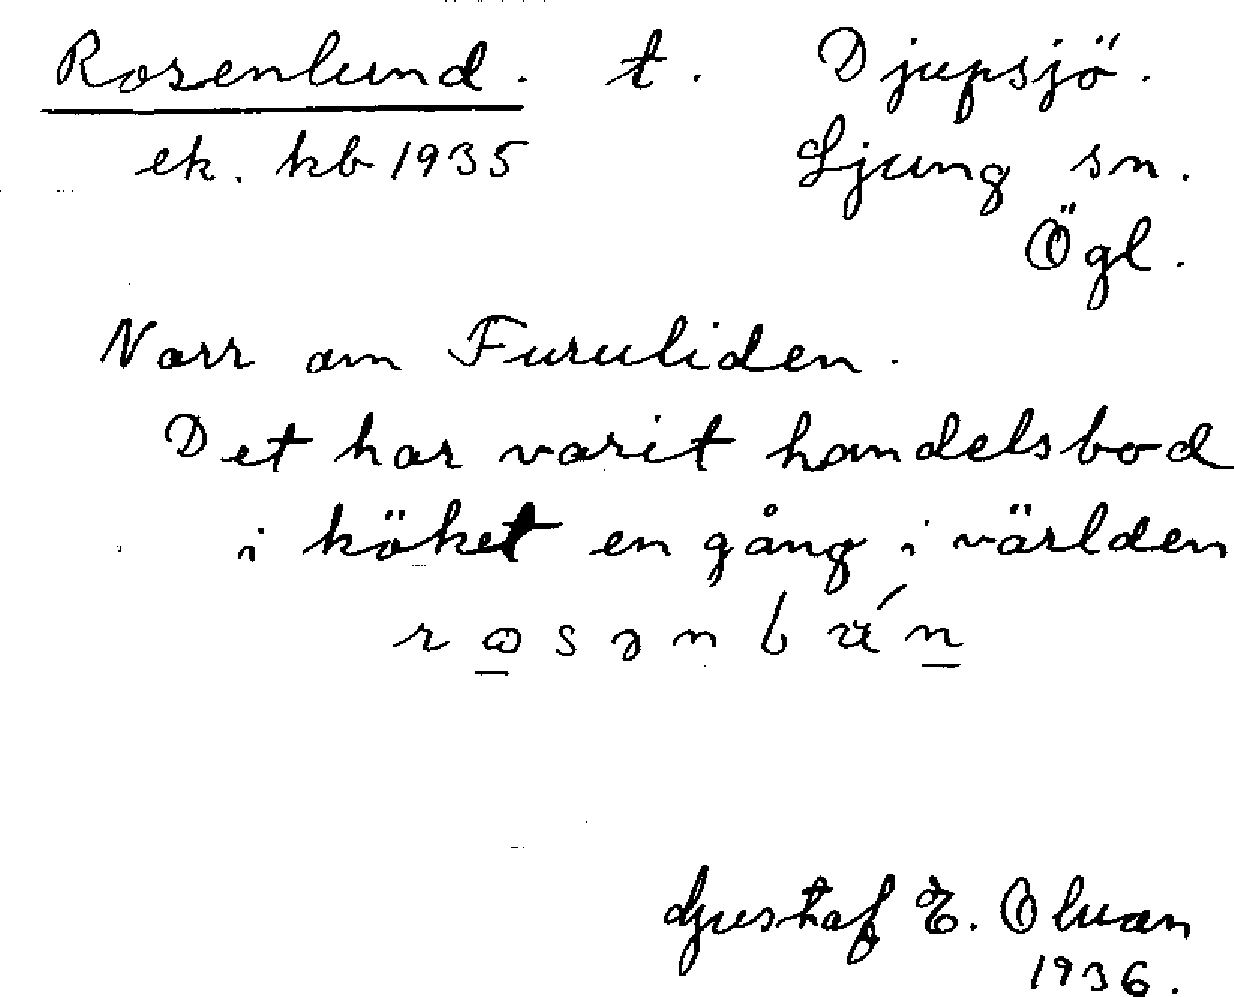 Rosenlund. t. Djupsjö.
ek. kb 1935 Ljung sn.
Ögl.
Norr om Furuliden.
Det har varit handelsbod
i köket en gång i världen
Gustaf E. Oluan
1936.